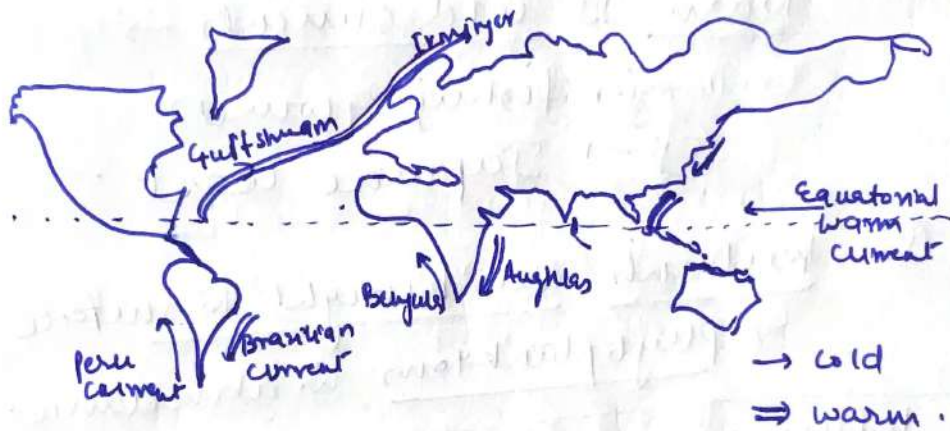 Irminger
Gulfstream
Equatorial
warm
current
Benguela
Aughlas
Peru
current
Brazilian
current
→ cold
⇒ warm.